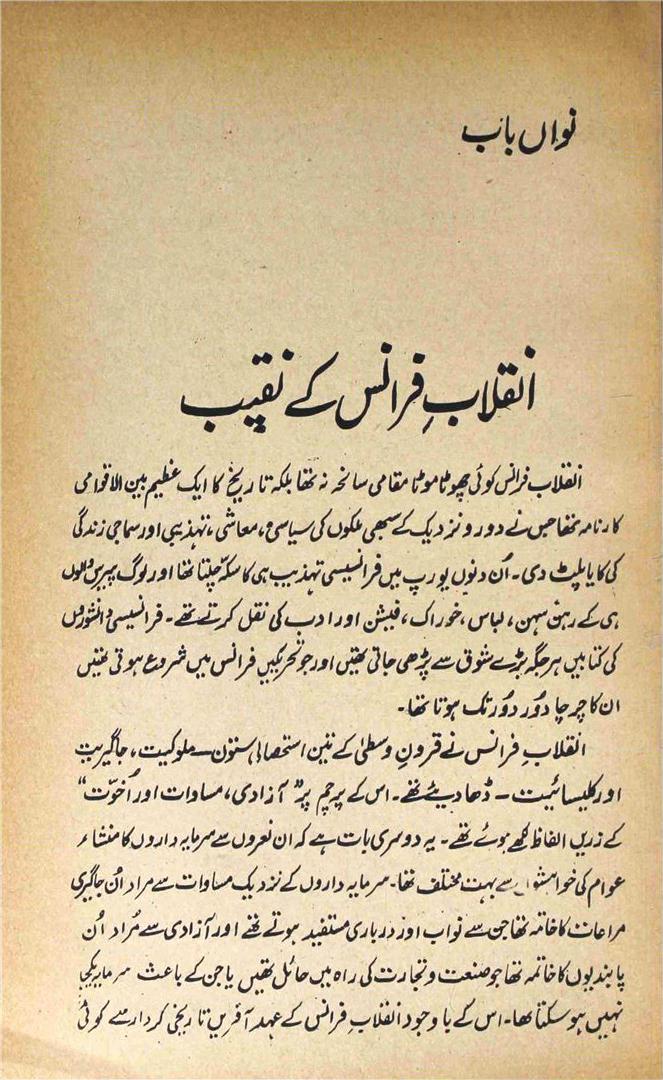 نواں باب
انقلابِ فرانس کے نقیب
انقلاب فرانس کوئی چھوٹا موٹا مقامی سانحہ نہ تھا بلکہ تاریخ کا ایک عظیم بین الاقوامی
کارنامہ تھا جس نے دور و نزدیک کے سبھی ملکوں کی سیاسی، معاشی، تہذیبی اور سماجی زندگی
کی کایا پلٹ دی۔ اُن دنوں یورپ میں فرانسیسی تہذیب ہی کا سکہ چلتا تھا اور لوگ پیرس والوں
ہی کے رہن سہن، لباس، خوراک، فیشن اور ادب کی نقل کرتے تھے۔ فرانسیسی دانشوروں
کی کتابیں ہر جگہ بڑے شوق سے پڑھی جاتی تھیں اور جو تحریکیں فرانس میں شروع ہوتی تھیں
ان کا چرچا دُور دُور تک ہوتا تھا۔
انقلابِ فرانس نے قرونِ وسطیٰ کے تین استحصالی ستون — ملوکیت، جاگیریت
اور کلیسائیت — ڈھا دیئے تھے۔ اس کے پرچم پر "آزادی، مساوات اور اُخوّت"
کے زریں الفاظ لکھے ہوئے تھے۔ یہ دوسری بات ہے کہ ان نعروں سے سرمایہ داروں کا منشاء
عوام کی خواہشوں سے بہت مختلف تھا۔ سرمایہ داروں کے نزدیک مساوات سے مراد اُن جاگیری
مراعات کا خاتمہ تھا جن سے نواب اور درباری مستفید ہوتے تھے اور آزادی سے مُراد اُن
پابندیوں کا خاتمہ تھا جو صنعت و تجارت کی راہ میں حائل تھیں یا جن کے باعث سرمایہ یکجا
نہیں ہو سکتا تھا۔ اس کے باوجود انقلاب فرانس کے عہد آفریں تاریخی کردار سے کوئی